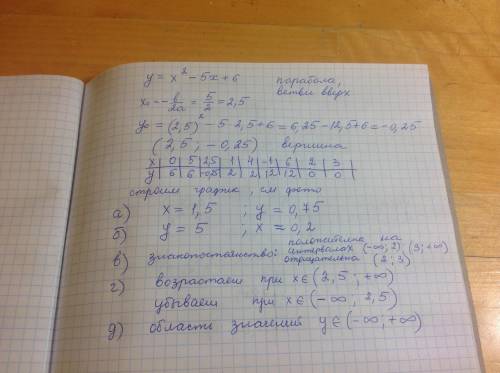 y = x² − 5x + 6 парабола,
ветви вверх
x₀ = − b/2a = 5/2 = 2,5
y₀ = (2,5)² − 5·2,5 + 6 = 6,25 − 12,5 + 6 = −0,25
(2,5; −0,25) вершина
x | 0 | 5 | 2,5 | 1 | 4 | −1 | 6 | 2 | 3
y | 6 | 6 | −0,25 | 2 | 2 | 12 | 12 | 0 | 0
строим график, см фото
а) x = 1,5 ; y = 0,75
б) y = 5 ; x = 0,2
в) знакопостоянство: положительна на интервалах (−∞; 2) (3; +∞)
отрицательна (2; 3)
г) возрастает при x ∈ (2,5; +∞)
убывает при x ∈ (−∞; 2,5)
д) область значений y ∈ (−∞; +∞)